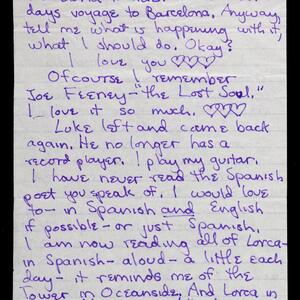 days voyage to Barcelona. Anyway,
tell me what is happening with it,
what I should do. Okay?
I love you
Ofcourse I remember
Joe Feeney-"the Lost Soul."
I love it so much.
Luke left and came back
again. He no longer has a
record player. I play my guitar.
I have never read the Spanish
poet you speak of. I would love
to- in Spanish and English
if possible- or just Spanish.
I am now reading all of Lorca-
in Spanish- aloud- a little each
day- it reminds me of the
Tower in Oceanside, And Lorca in